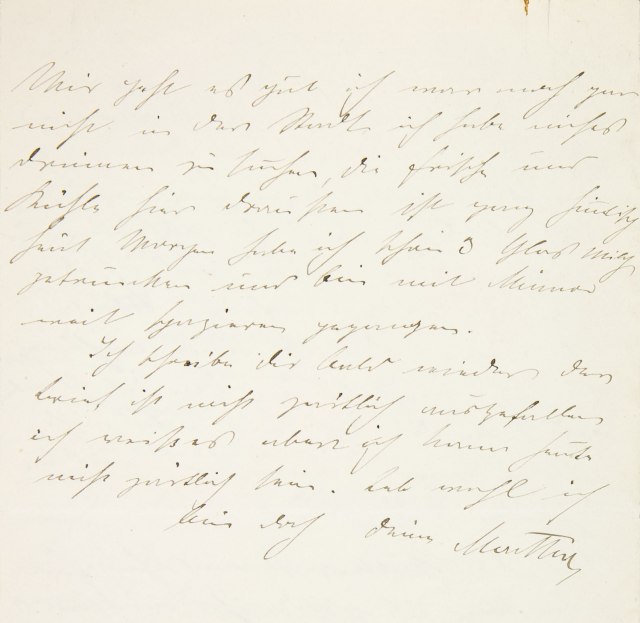 Mir geht es gut ich war noch gar
nicht in der Stadt ich habe nichts
drinnen zu suchen, die frische und
Kühle hier draußen ist ganz
heut Morgen habe ich schon 3 Glas Milch
getrunken und bin mit Minna
weit spazieren gegangen.
Ich schreibe dir bald wieder der
brief ist nicht zärtlich ausgefallen
ich weiß es aber ich kann heute
nicht zärtlich sein. Leb wohl ich
bin doch deine Martha